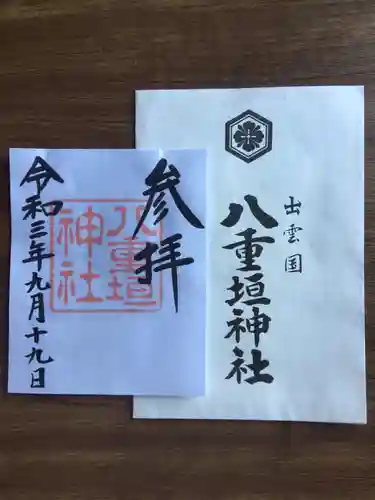 出雲国
八重垣神社
参拝
八重垣
神社
令和三年九月十九日